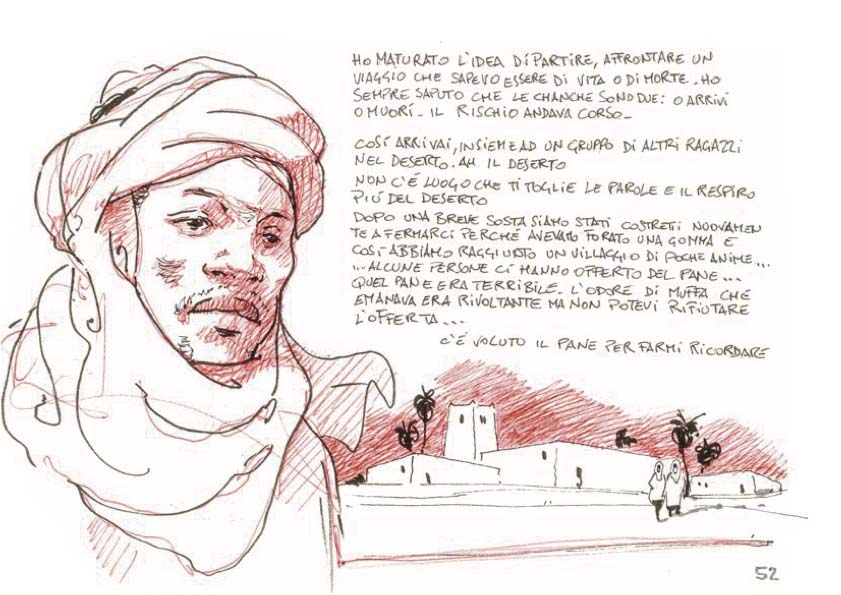 HO MATURATO L'IDEA DI PARTIRE, AFFRONTARE UN
VIAGGIO CHE SAPEVO ESSERE DI VITA O DI MORTE. HO
SEMPRE SAPUTO CHE LE CHANCHE SONO DUE: O ARRIVI
O MUORI. IL RISCHIO ANDAVA CORSO.
COSÍ ARRIVAI, INSIEME AD UN GRUPPO DI ALTRI RAGAZZI
NEL DESERTO. AH IL DESERTO
NON C'É LUOGO CHE TI TOGLIE LE PAROLE E IL RESPIRO
PIÚ DEL DESERTO
DOPO UNA BREVE SOSTA SIAMO STATI COSTRETI NUOVAMEN
TE A FERMARCI PERCHÉ AVEVAMO FORATO UNA GOMMA E
COSÍ ABBIAMO RAGGIUNTO UN VILLAGGIO DI POCHE ANIME...
...ALCUNE PERSONE CI HANNO OFFERTO DEL PANE...
QUEL PANE ERA TERRIBILE. L'ODORE DI MUFFA CHE
EMANAVA ERA RIVOLTANTE MA NON POTEVI RIFIUTARE
L'OFFERTA...
C'É VOLUTO IL PANE PER FARMI RICORDARE
52